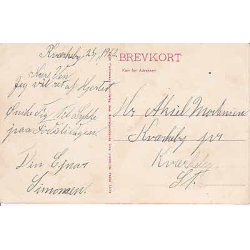 Kværkeby 23/ 1912
Kære Ven
Jeg vil ret af Hjertet
Ønske Dig Til Lykke
paa Fødselsdagen
Din Ejnar
Simonsen
BREVKORT
Kun for Adressen
Hr Aksel Mortensen
Kværkeby pr
Kværkeby
St.